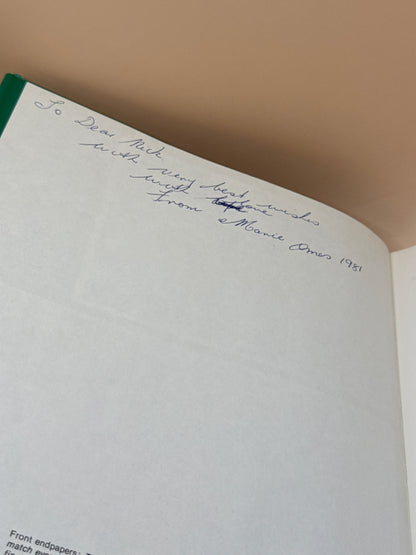 To Dear Nick
with very best wishes
with love
from Marie Omes 1981
Front endpapers: T
match eve
fin